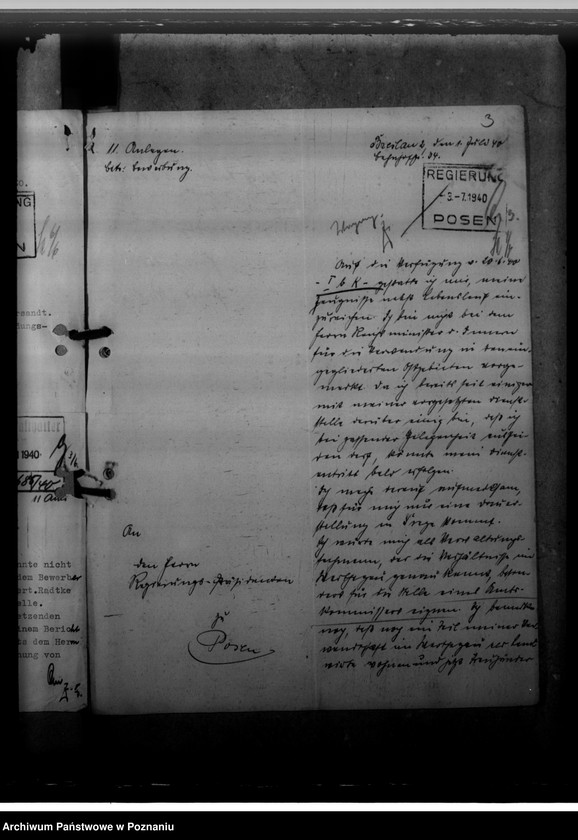 3
11 Anlagen.
betr. Bewerbung.
Breslau 2, den 1. Juli 40
REGIERUNG
-3-7.1940
POSEN
Auf die Verfügung v. 20.6.40
- I b K - gestatte ich mir, meine
Zeugnisse nebst Lebenslauf ein-
zureichen. Ich bin nicht bei dem
Herrn Reichsminister d. Innern
für die Verwendung in den ein-
gegliederten Ostgebieten vorge-
merkt. Da ich bereits seit einigen
mit meiner vorgesetzten Dienst-
stelle darüber einig bin, daß ich
bei passender Gelegenheit ausschei-
den darf, könnte mein Dienst-
antritt bald erfolgen.
Ich mache darauf aufmerksam,
daß für mich nur eine Dauer-
stellung in Frage kommt.
Ich würde mich als Verwaltungs-
fachmann, der die Verhältnisse im
Warthegau genau kennt, beson-
ders für die Stelle eines Amts-
kommissars eignen. Ich bemerke
noch, daß noch ein Teil meiner Ver-
wandschaft im Warthegau als Land-
wirte wohnen und jetzt Treuhänder
An
den Herrn
Regierungs-Präsidenten
zu
Posen
NG
N
ersandt.
dungs-
1940
11 Anl.
nnte nicht
dem Bewerber
ert. Radtke
elle.
etzenden
inem Bericht
ts dem Herrn
nung von
Archiwum Państwowe w Poznaniu